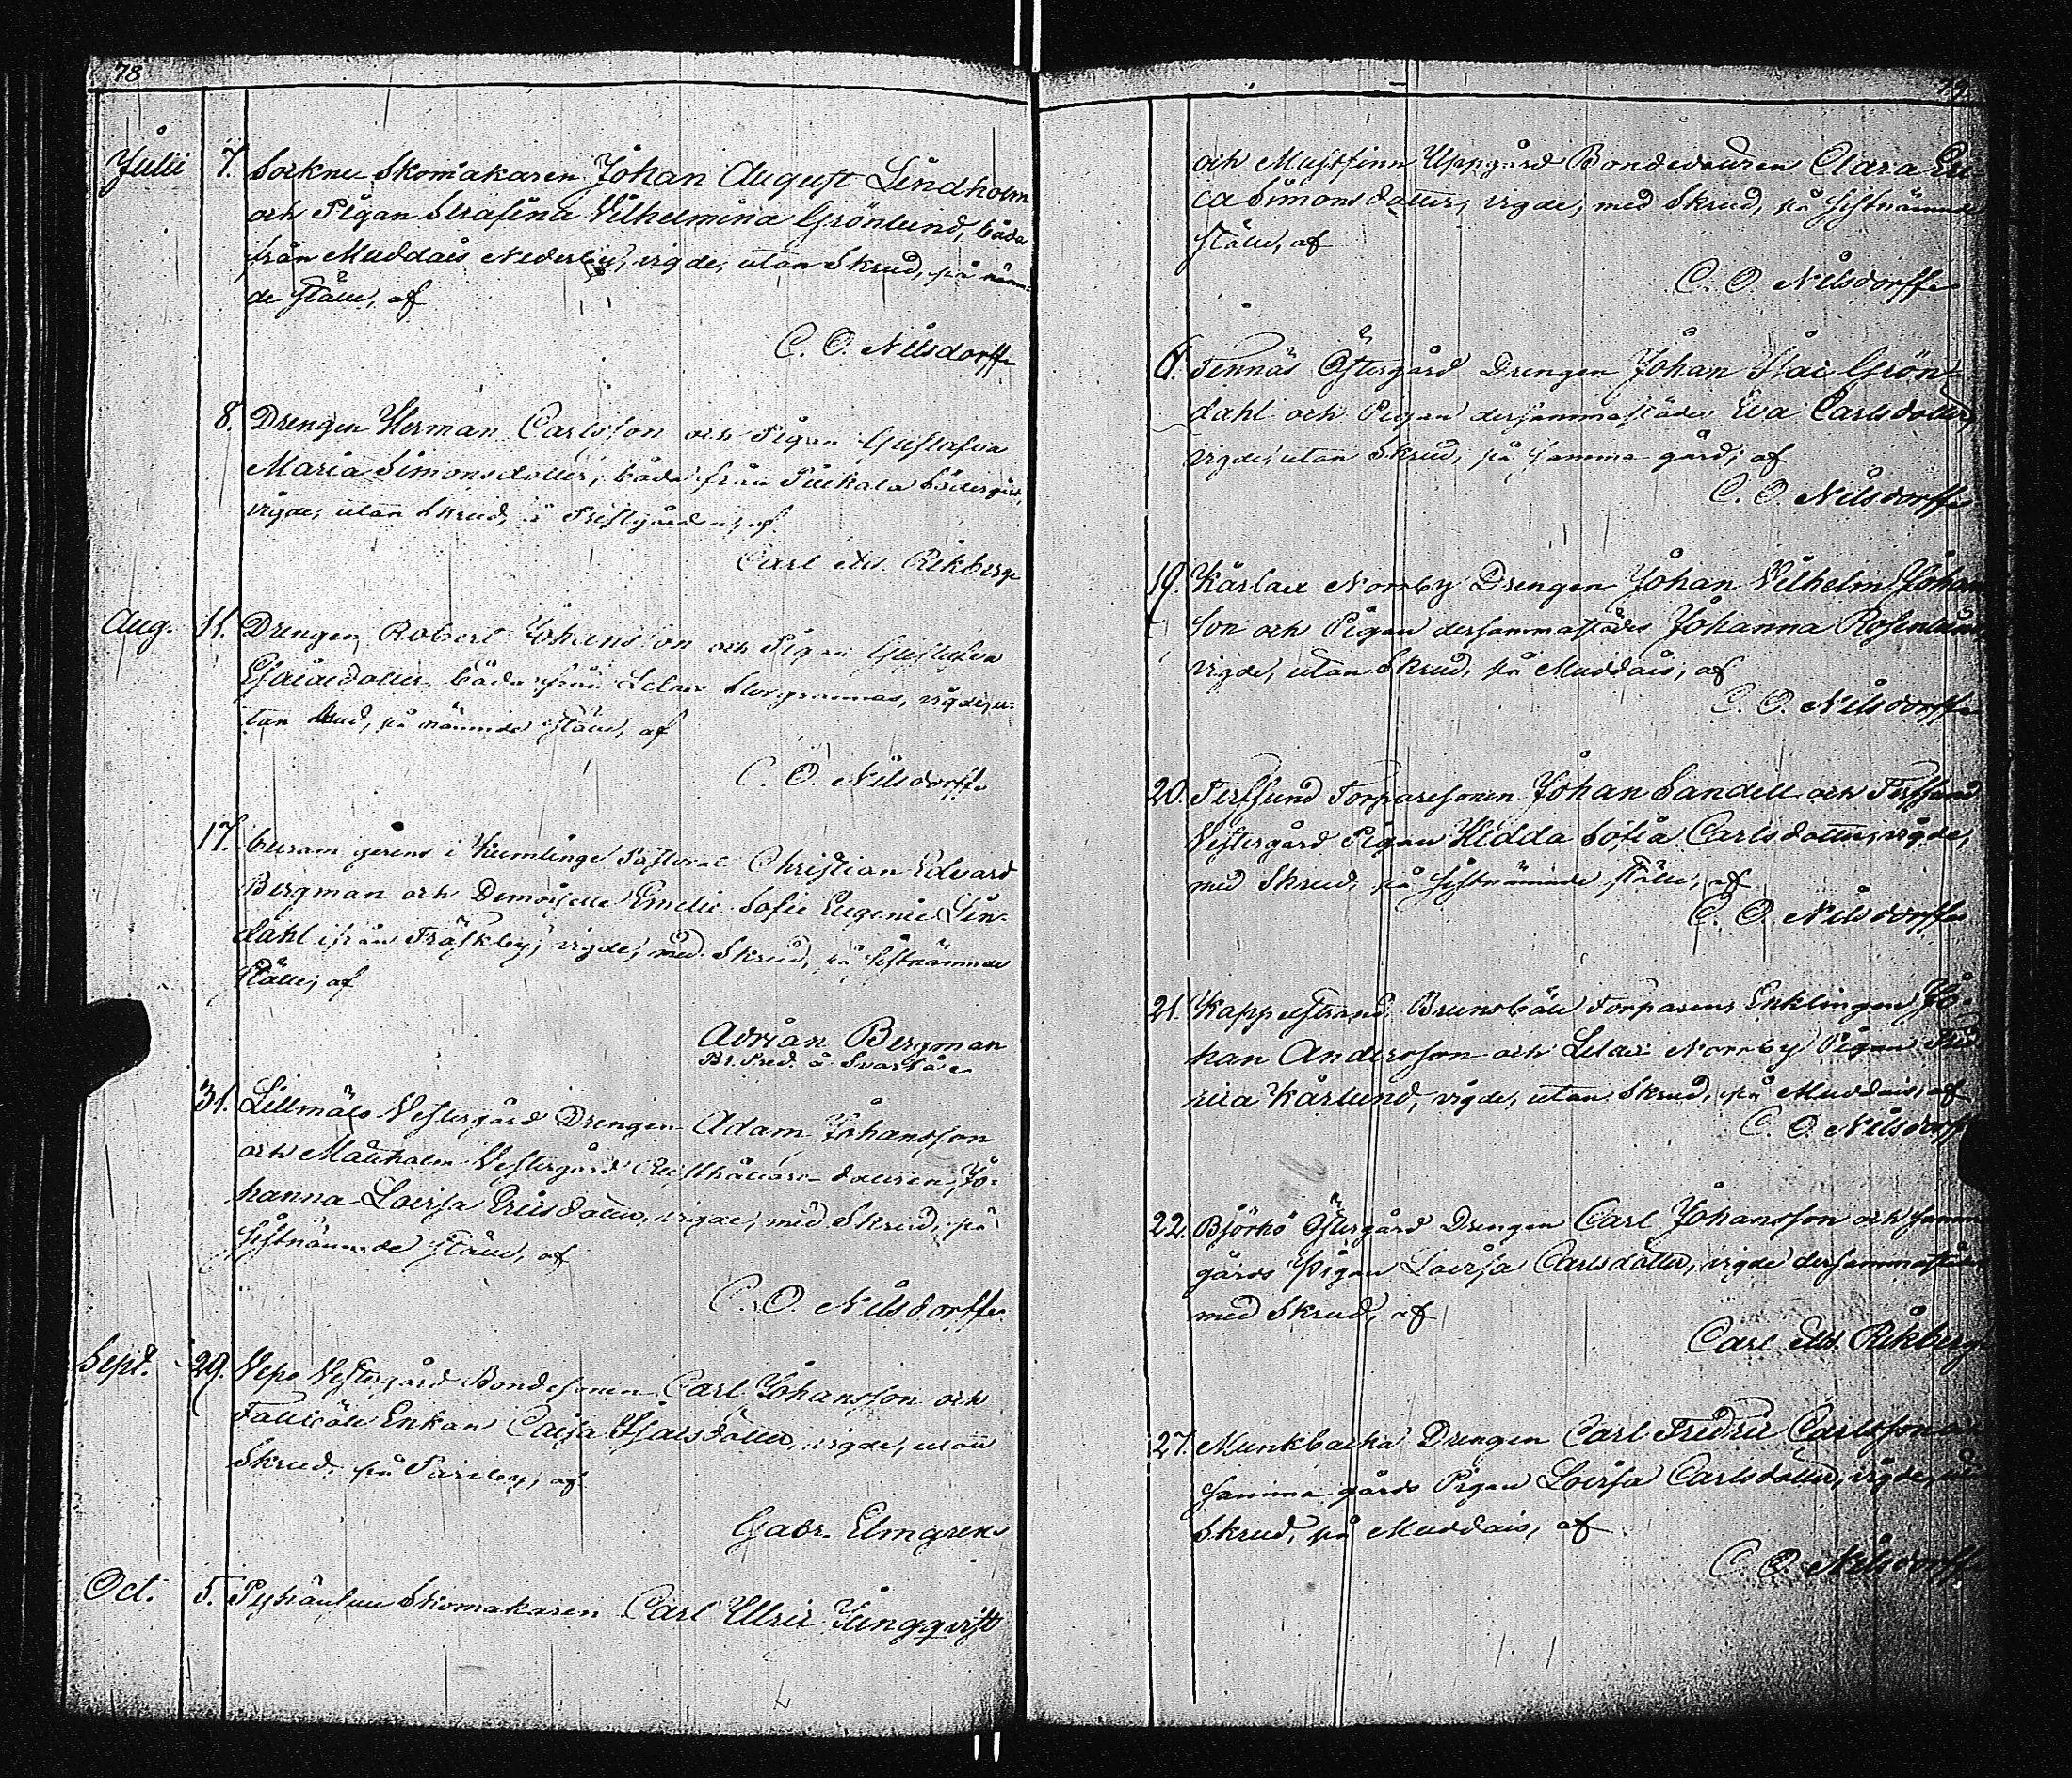 78
Julii 7. Sockne Skomakaren Johan August Lindholm
och Pigan Serafina Vilhelmina Grönlund, båda
från Muddais Nederby, vigde, utan Skrud, på nämn-
de ställe, af
C. O. Nilsdorff
8. Drengen Herman Carlsson och Pigan Gustafva
Maria Simonsdotter, båda från Piukala Södergård,
vigde, utan Skrud, i Prestgården, af
Carl Edv. Rikberg
Aug. 11. Drengen Robert Johansson och Pigan Gustafva
Esaiaedotter, båda från Storgrannas, vigde, u-
tan Skrud, på nämnde ställe, af
C. O. Nilsdorff
17. Curam gerens i Kumlinge Pastorat Christian Edvard
Bergman och Demoiselle Emelie Sofie Eugenie Lin-
dahl ifrån Träskby, vigde, med Skrud, på sistnämnde
ställe, af
Adrian Bergman
Br. Pred. å Svartå
31. Lillmälö Vestergård Drengen Adam Johansson
och Mallholm Vestergård Rusthållare dottren Jo-
hanna Lovisa Ericsdotter, vigde, med Skrud, på
sistnämnde ställe, af
C. O. Nilsdorff
Sept. 29. Vepo Vestergård Bondesonen Carl Johansson och
Enkan Caisa Esaiaedotter, vigde, utan
Skrud, på Pareby, af
Gabr. Elmgren
Oct. 5. Skomakaren Carl Ulric Ljungqvist
79
och Mustfinn Uppgård Bondedottren Clara Eri-
ca Simonsdotter, vigde, med Skrud, på sistnämnde
ställe, af
C. O. Nilsdorff
6. Tennäs Östergård Drengen Johan Isac Grön-
dahl och Pigan dersammastädes Eva Carlsdotter,
vigde, utan Skrud, på samma gård, af
C. O. Nilsdorff
19. Kårlax Norrby Drengen Johan Vilhelm Johans
son och Pigan dersammastädes Johanna Rosenlund,
vigde, utan Skrud, på Muddais, af
C. O. Nilsdorff
20. Perssund Torparesonen Johan Sandell och
Vestergård Pigan Hedda Sofia Carlsdotter, vigde,
med Skrud, på sistnämnde ställe, af
C. O. Nilsdorff
21. Kappelstrand Torparen, Enklingen Jo-
han Andersson och Norrby Pigan Fred
rica Kårlund, vigde, utan Skrud, på Muddais, af
C. O. Nilsdorff
22. Björkö Östergård Drengen Carl Johansson och samma
gårds Pigan Lovisa Carlsdotter, vigde dersammastädes
med Skrud, af
Carl Edv. Rikberg
27. Munkbacka Drengen Carl Fredric Carlsson och
samma gårds Pigan Lovisa Carlsdotter, vigde, utan
Skrud, på Muddais, af
C. O. Nilsdorff